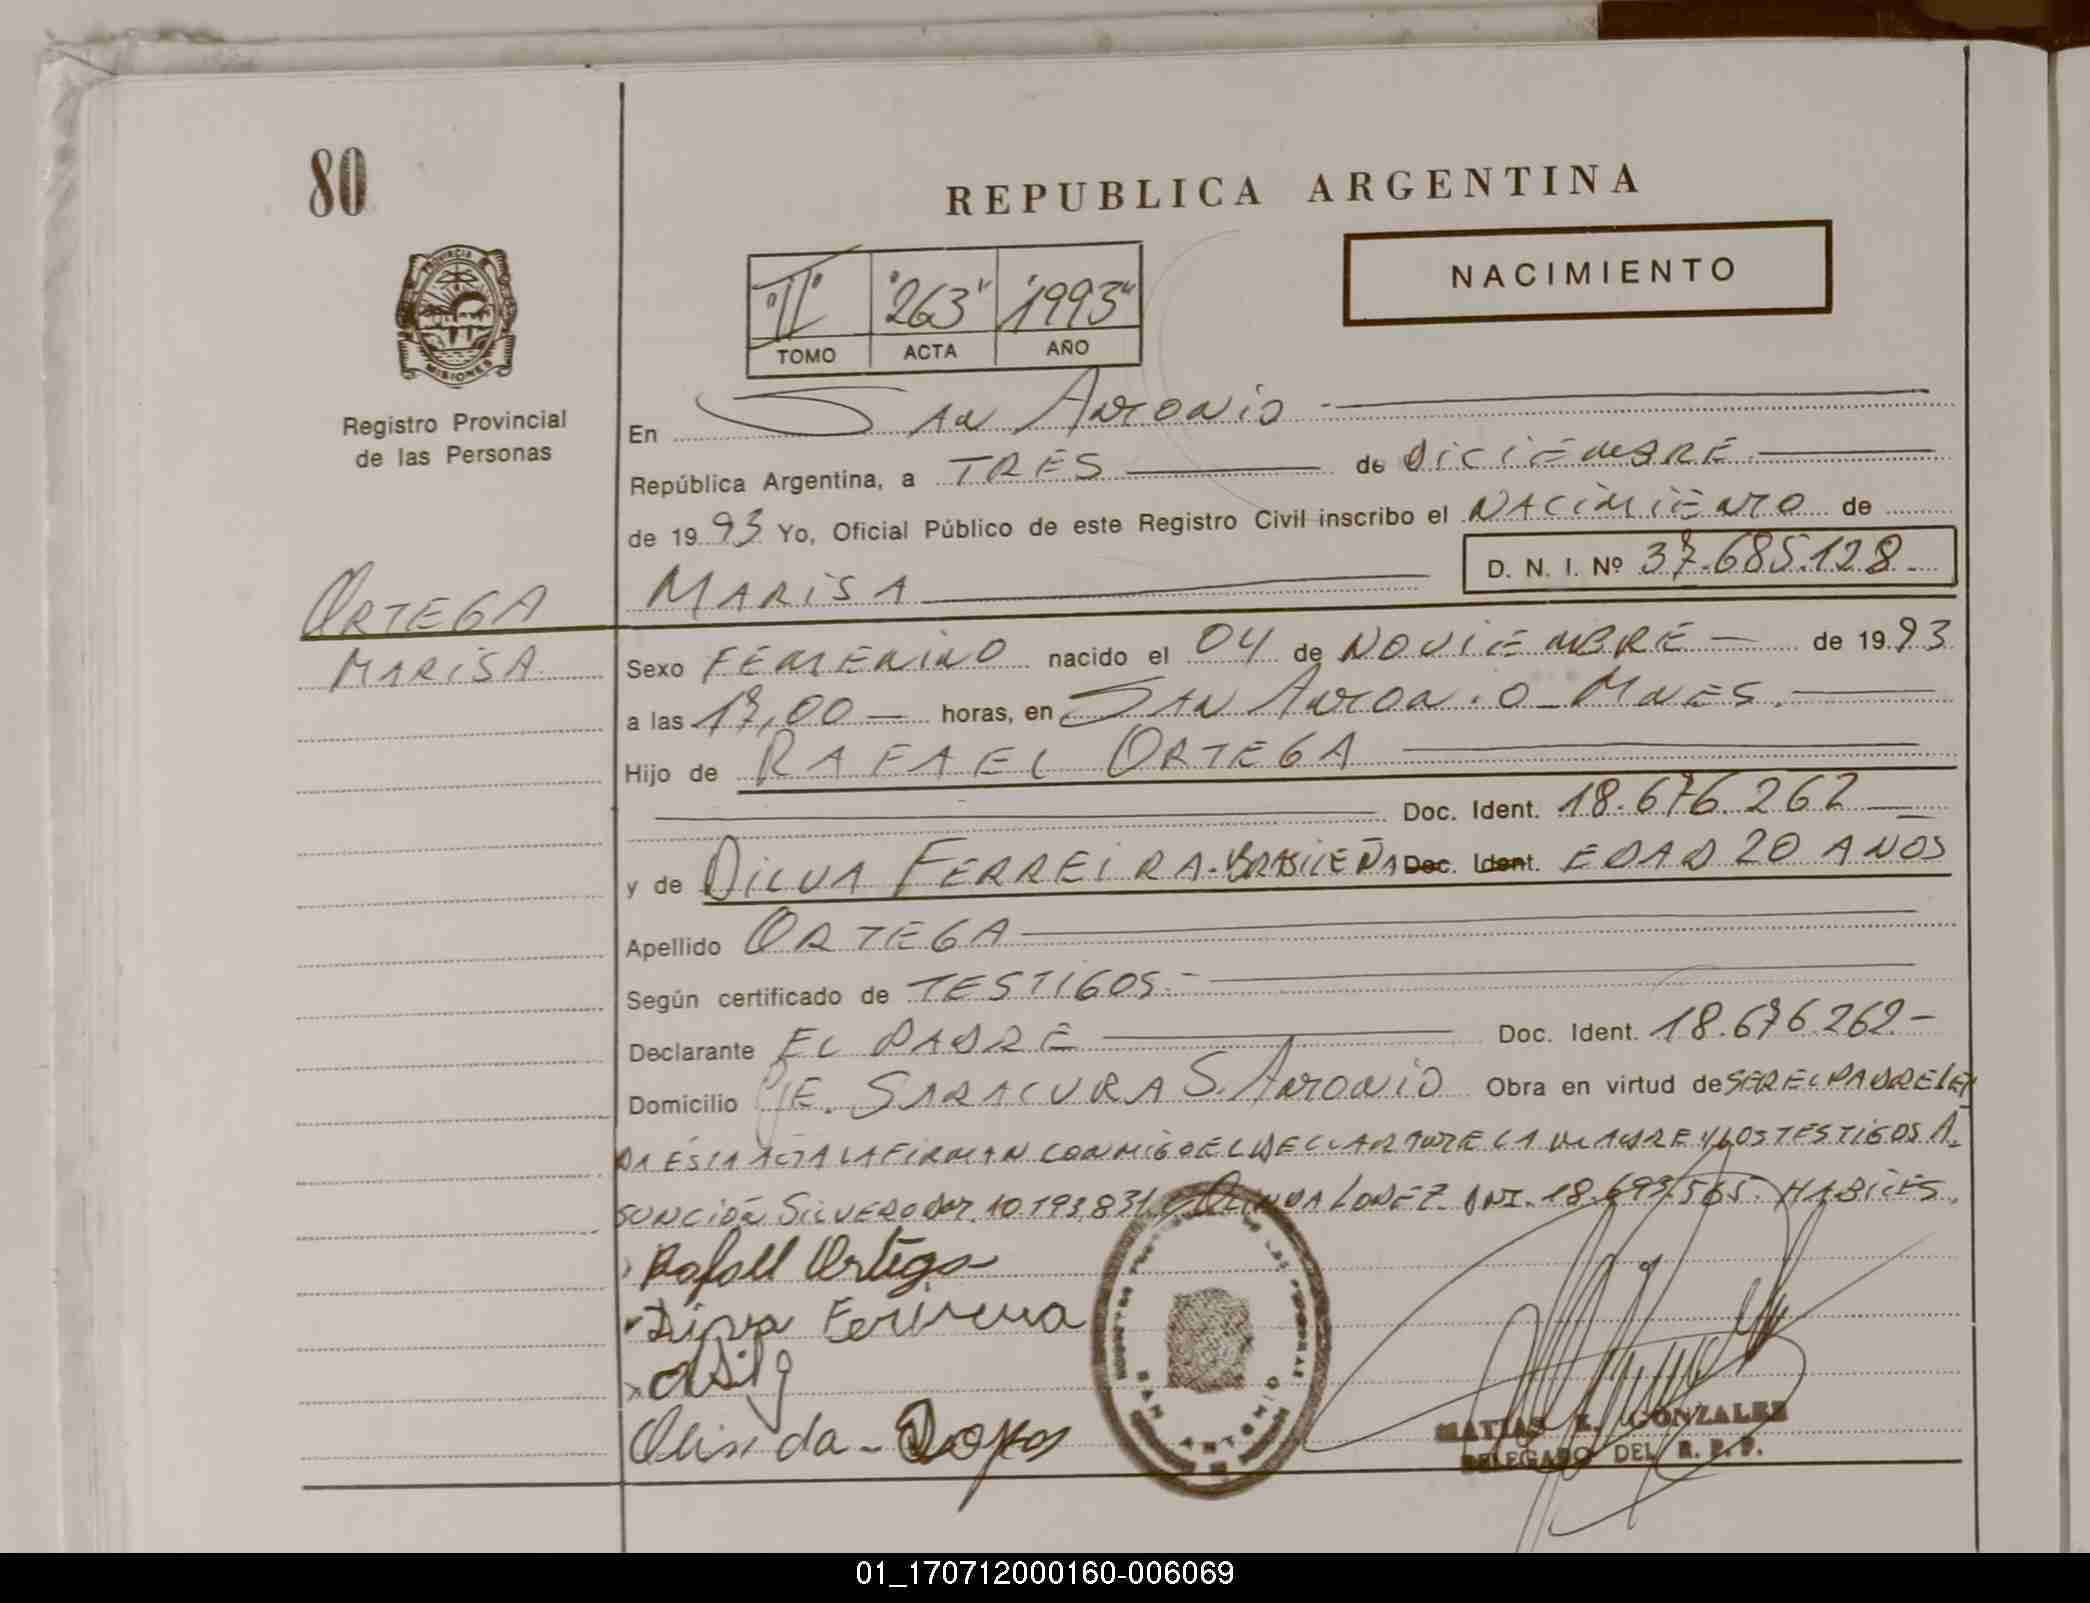 80
REPUBLICA ARGENTINA
NACIMIENTO
"II" "263" "1993"
TOMO ACTA AÑO
PROVINCIA DE
MISIONES
Registro Provincial
de las Personas
En SAN ANTONIO
República Argentina, a TRES de DICIEMBRE
de 1993 Yo, Oficial Público de este Registro Civil inscribo el NACIMIENTO de
D. N. I. Nº 37.685.128
ORTEGA MARISA
MARISA
Sexo FEMENINO nacido el 04 de NOVIEMBRE de 1993
a las 17,00 horas, en SAN ANTONIO - MNES.
Hijo de RAFAEL ORTEGA
Doc. Ident. 18.676.262
y de DILVA FERREIRA - BRASILEÑA Doc. Ident. EDAD 20 AÑOS
Apellido ORTEGA
Según certificado de TESTIGOS.-
Declarante EL PADRE Doc. Ident. 18.676.262-
Domicilio PJE. SARACURA S. ANTONIO Obra en virtud de SER EL PADRE LEI
DA ÉSTA ACTA LA FIRMAN CONMIGO EL DECLARANTE LA MADRE Y LOS TESTIGOS A.
SUNCIÓN SILVERO 10.193.831 LOPEZ DNI. 18.693.565. HABILES.
Rafall Ortega
Dilva Ferreira
Olinda - Lopes
SAN ANTONIO
MATIAS E. GONZALEZ
DELEGADO DEL R. P. P.
01_170712000160-006069